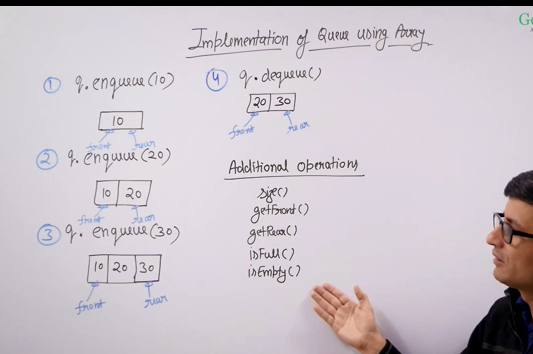 Implementation of Queue using Array
① q.enqueue(10)
10
front rear
② q.enqueue(20)
10 20
front rear
③ q.enqueue(30)
10 20 30
front rear
④ q.dequeue()
20 30
front rear
Additional Operations
size()
getFront()
getRear()
isFull()
isEmpty()